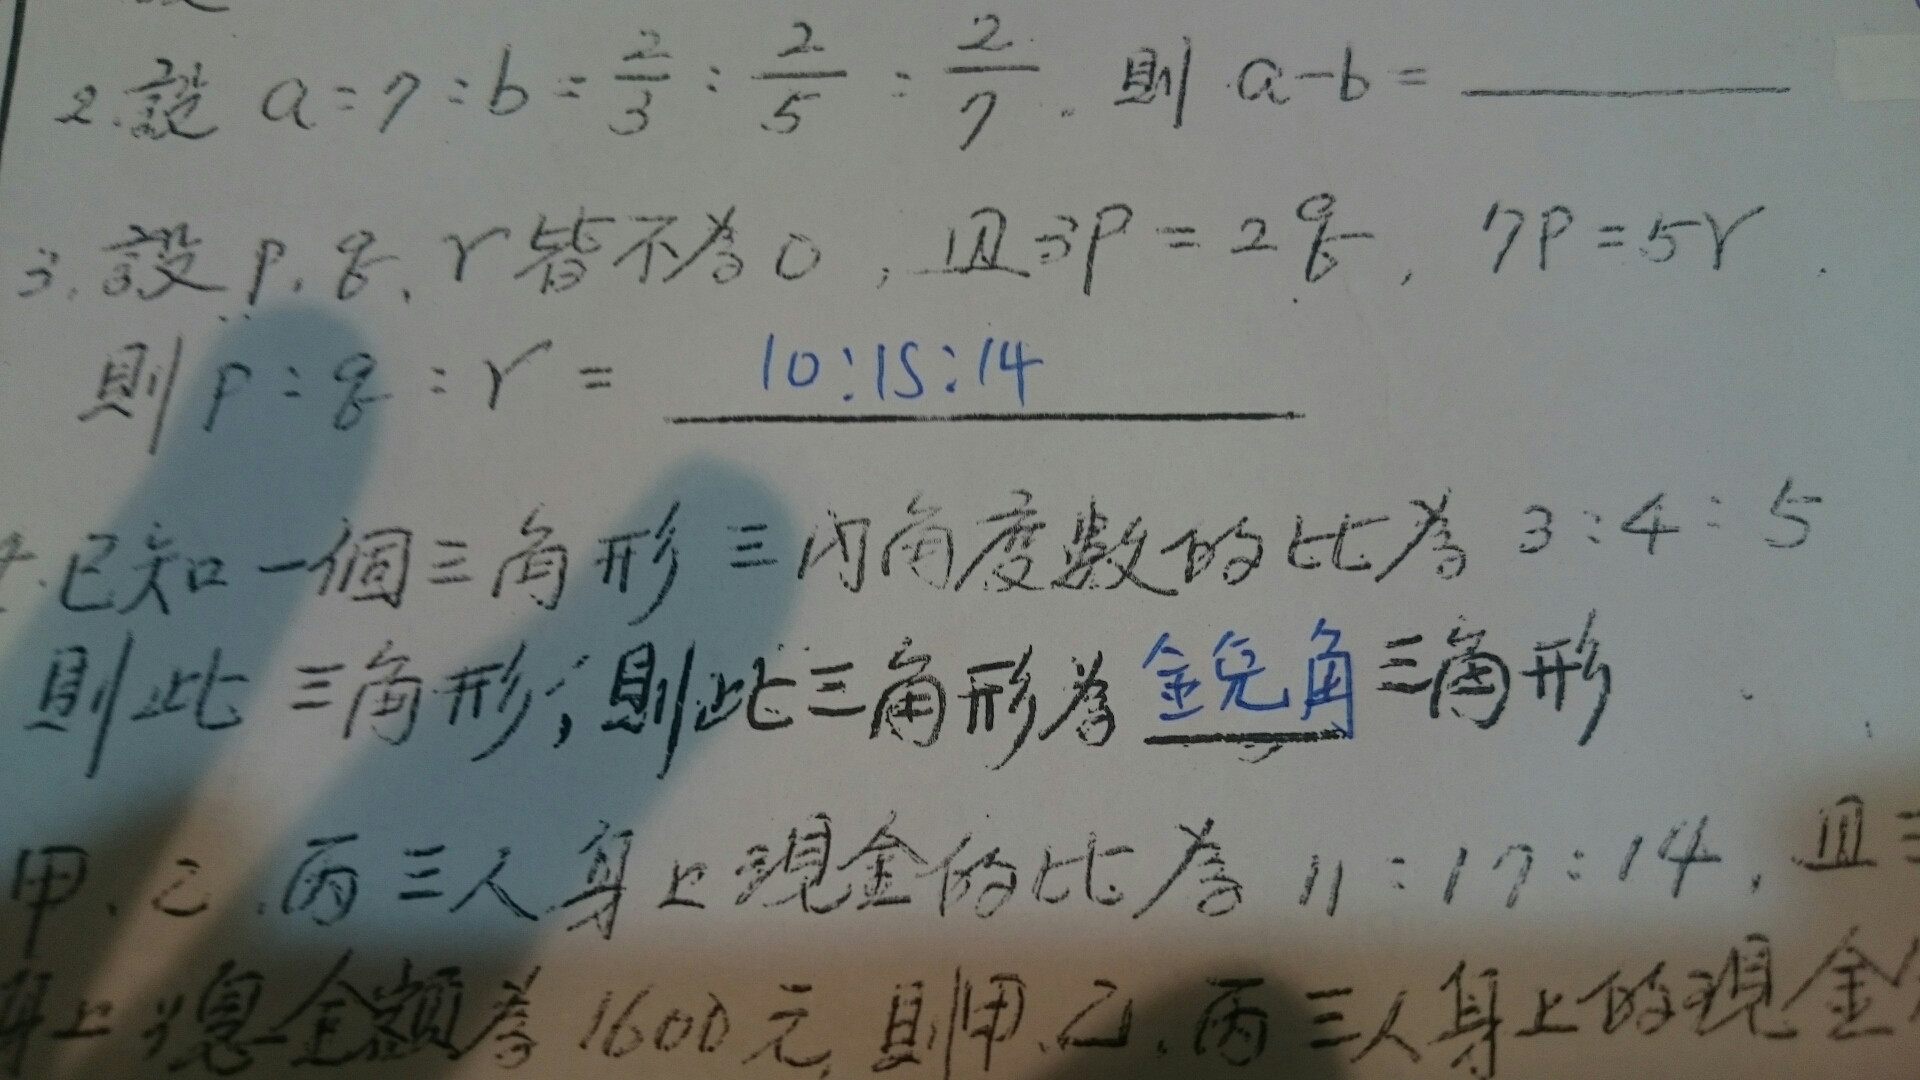 2.設 a:7:b=2/3:2/5:2/7. 則 a-b=
3.設 p.q.r皆不為0,且3p=2q,7p=5r.
則p:q:r= 10:15:14
已知一個三角形三內角度數的比為3:4:5
則此三角形;則此三角形為銳角三角形
甲.乙.丙三人身上現金的比為11:17:14,且三
身上總金額為1600元,則甲.乙.丙三人身上的現金